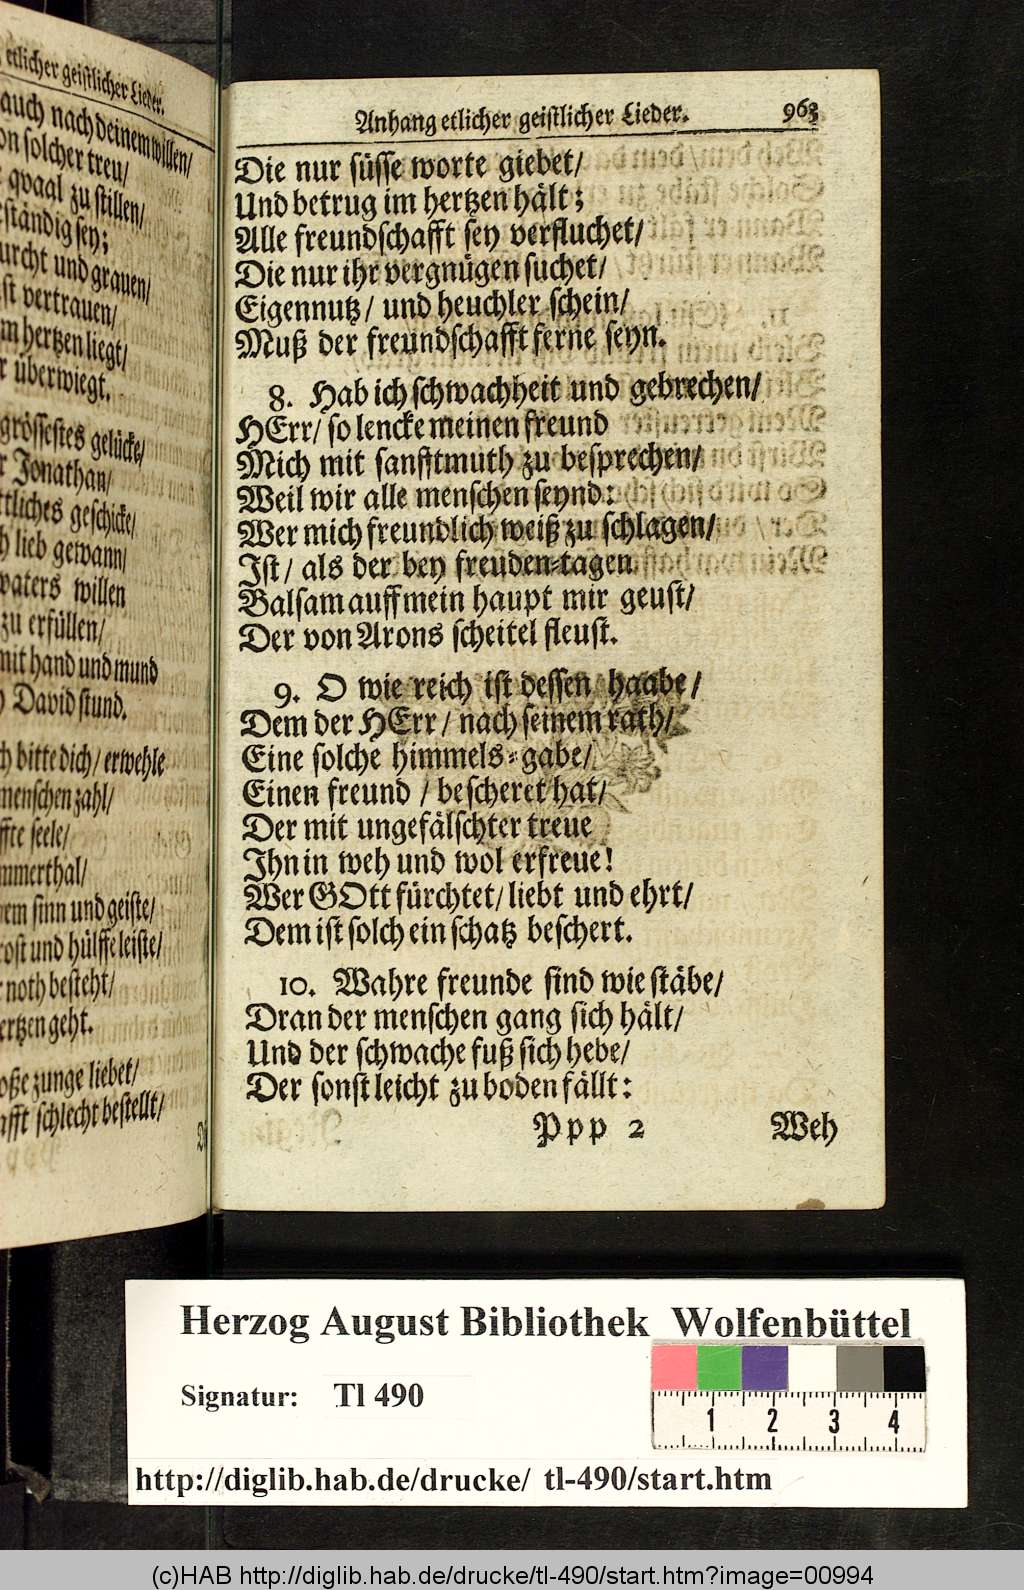 etlicher geistlicher Lieder.
auch nach deinem willen/
on solcher treu/
qvaal zu stillen/
eständig sey;
urcht und grauen/
st vertrauen/
m hertzen liegt/
r überwiegt.
grössestes gelücke/
r Jonathan/
ttliches geschicke/
h lieb gewann/
vaters willen
zu erfüllen/
mit hand und mund
David stund.
ch bitte dich/ erwehle
menschen zahl/
ffte seele/
mmerthal/
em sinn und geiste/
rost und hülffe leiste/
r noth besteht/
ertzen geht.
oße zunge liebet/
afft schlecht bestellt/
Anhang etlicher geistlicher Lieder. 963
Die nur süsse worte giebet/
Und betrug im hertzen hält;
Alle freundschafft sey verfluchet/
Die nur ihr vergnügen suchet/
Eigennutz/ und heuchler schein/
Muß der freundschafft ferne seyn.
8. Hab ich schwachheit und gebrechen/
HErr/ so lencke meinen freund
Mich mit sanfftmuth zu besprechen/
Weil wir alle menschen seynd:
Wer mich freundlich weiß zu schlagen/
Ist/ als der bey freuden-tagen
Balsam auff mein haupt mir geust/
Der von Arons scheitel fleust.
9. O wie reich ist dessen haabe/
Dem der HErr/ nach seinem rath/
Eine solche himmels-gabe/
Einen freund/ bescheret hat/
Der mit ungefälschter treue
Ihn in weh und wol erfreue!
Wer GOtt fürchtet/ liebt und ehrt/
Dem ist solch ein schatz beschert.
10. Wahre freunde sind wie stäbe/
Dran der menschen gang sich hält/
Und der schwache fuß sich hebe/
Der sonst leicht zu boden fällt:
Ppp 2 Weh
Herzog August Bibliothek Wolfenbüttel
Signatur: Tl 490
1 2 3 4
http://diglib.hab.de/drucke/ tl-490/start.htm
(c)HAB http://diglib.hab.de/drucke/tl-490/start.htm?image=00994